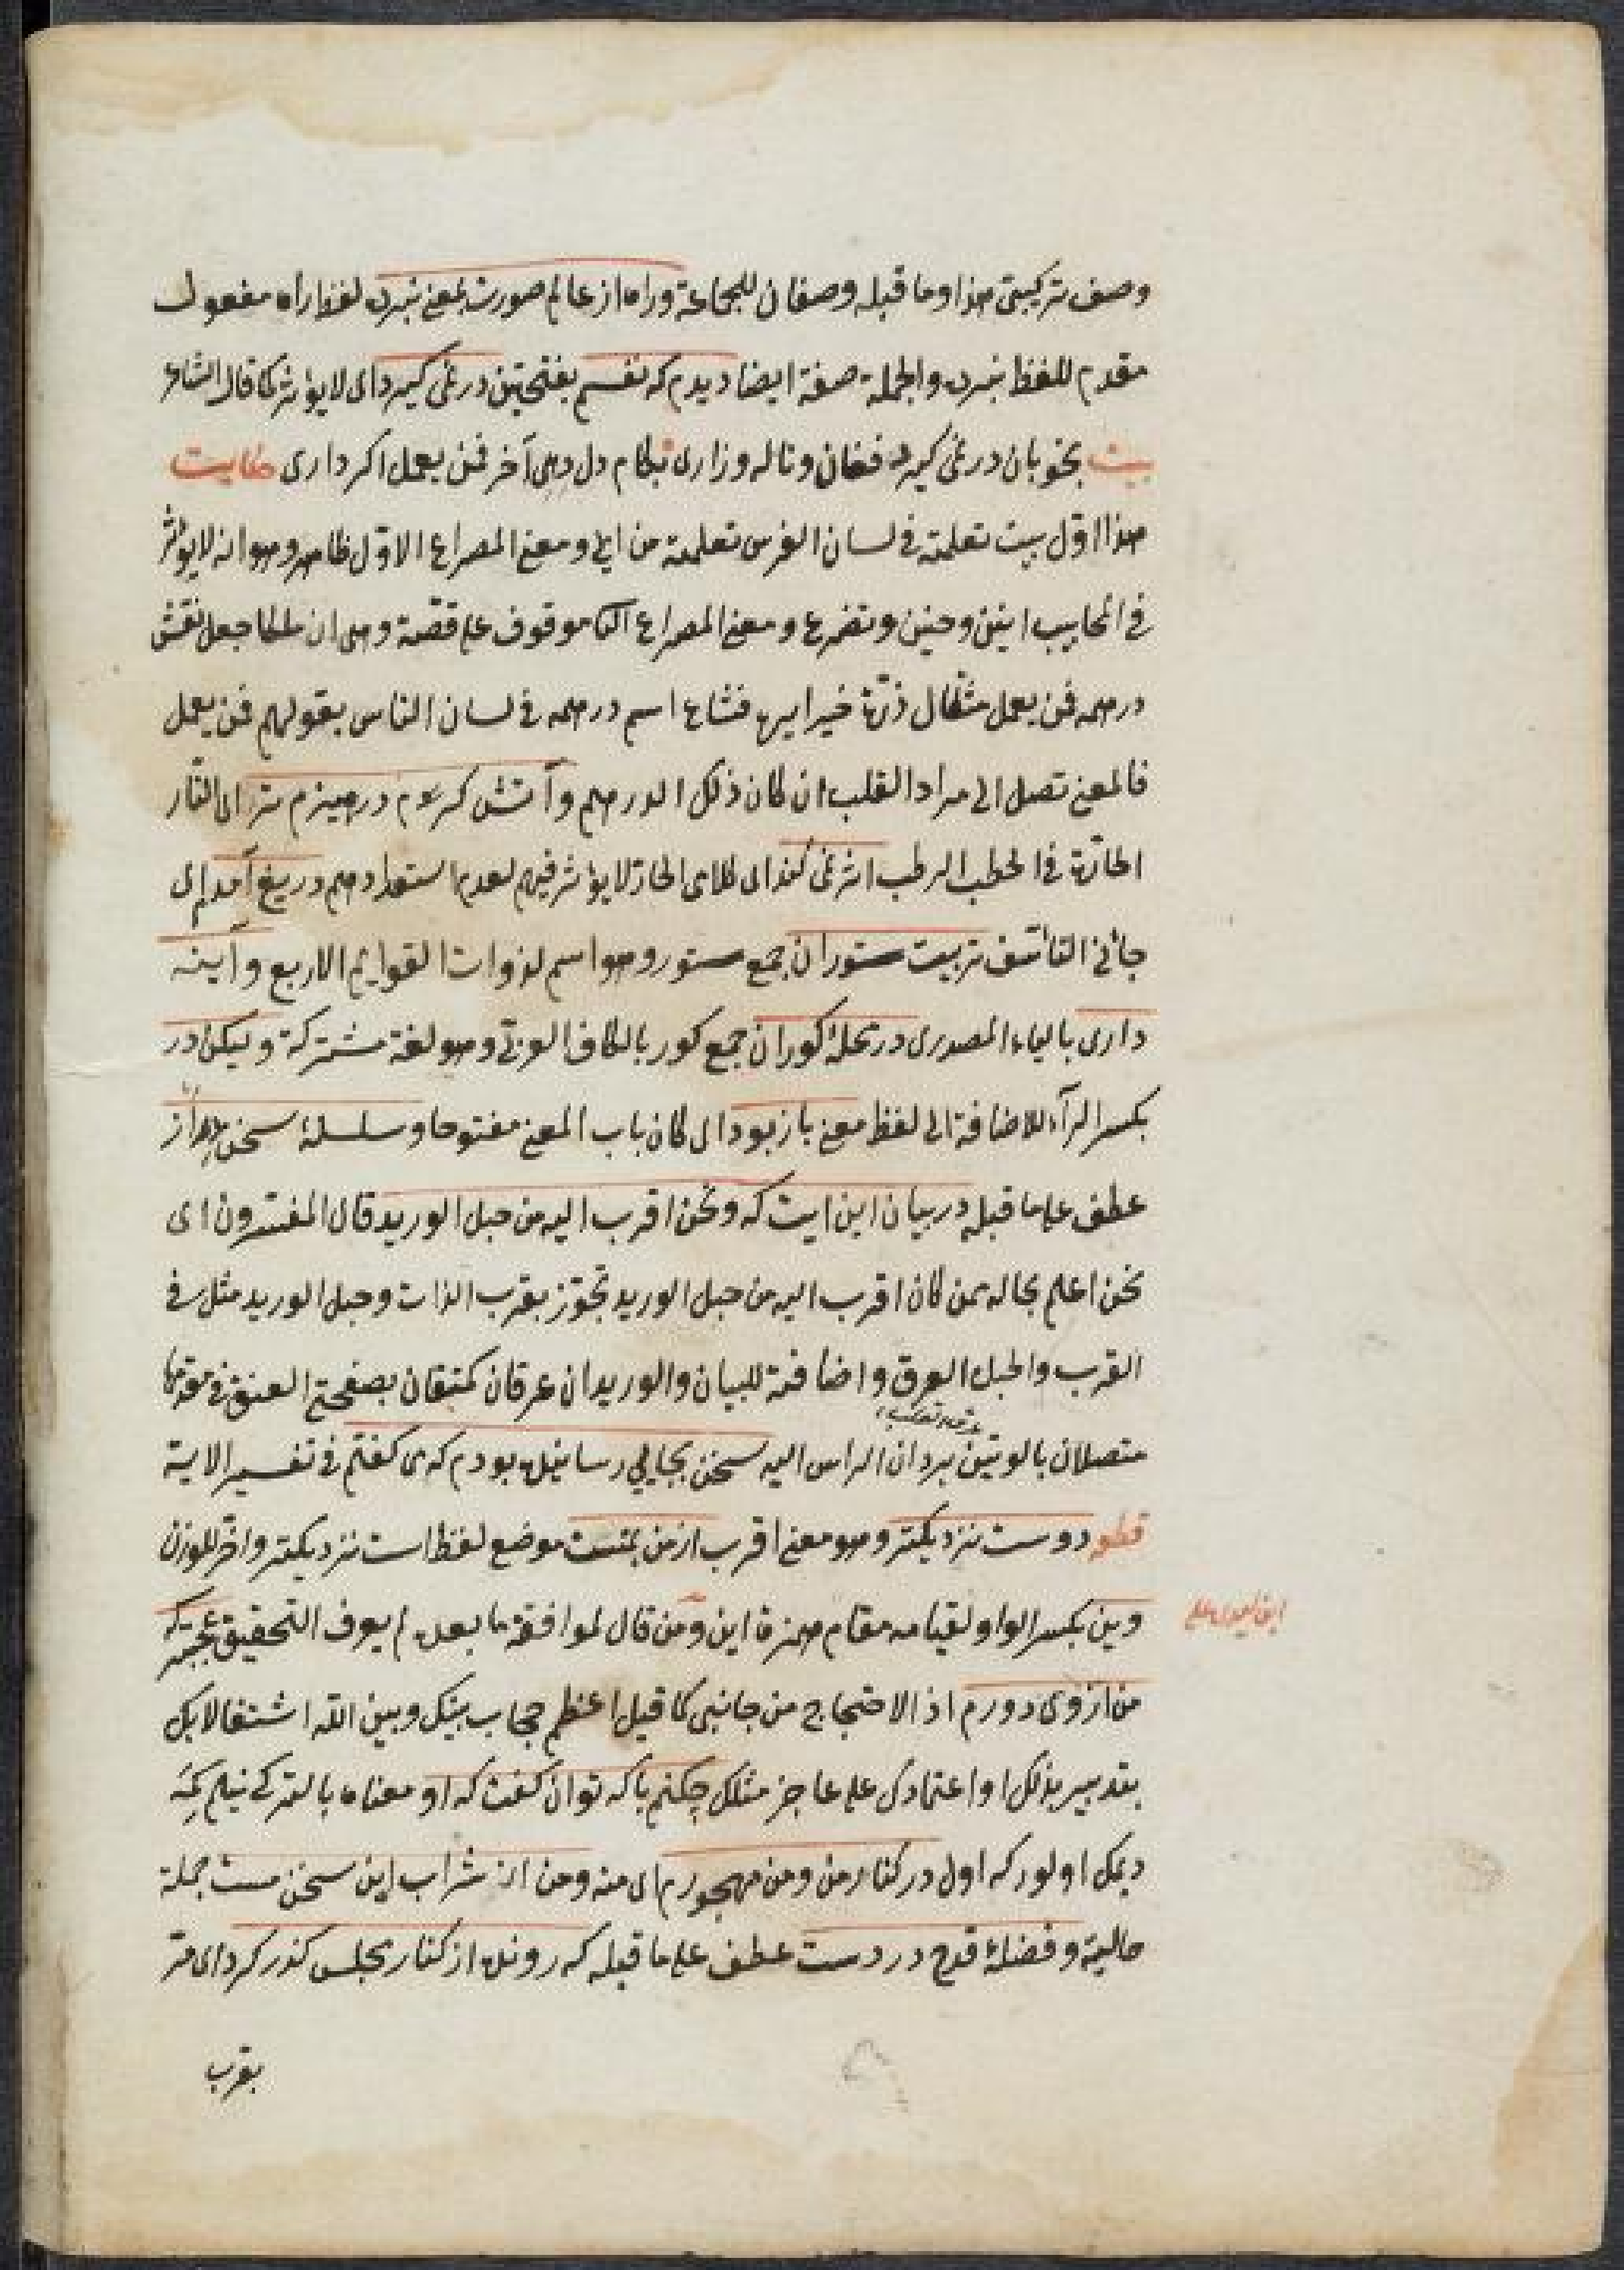 وصف تركيبى هذا وما قبله وصفان للجماعة وراه از عالم صورت بمعنى نبرده لفظ راه مفعول
مقدم للفظ نبرده والجملة صفة ايضا ديدم كه نفسم بفتحتين در نمى كيرد اى لا يؤثر كما قال الشاعر
بيت بخوبان در نمى كيرد فغان وناله وزارى بكام دل دهى آخر فمن يعمل اكر دارى
هذا اول بيت تعلمته فى لسان الفرس تعلمته من ابى ومعنى المصراع الاول ظاهر وهو انه لا يؤثر
فى المحابيب انين وحنين وتضرع ومعنى المصراع الثانى موقوف على قصة وهى ان ملكا جعل نقش
درهمه فمن يعمل مثقال ذرة خيرا يره فشاع اسم درهمه فى لسان الناس بقولهم فمن يعمل
فالمعنى تصل الى مراد القلب ان كان ذلك الدرهم وآتش كرم در هيزم تر اى النار
الحارة فى الحطب الرطب اثر نمى كند اى كلامى الحار لا يؤثر فيهم لعدم استعدادهم دريغ آمدم اى
جاءنى التأسف تربيت ستوران جمع ستور وهو اسم لذوات القوايم الاربع وآينه
دارى بالياء المصدرى در محلهٔ كوران جمع كور بالكاف العربى وهو لغة مشتركة وليكن در
بكسر الرآء للاضافة الى لفظ معنى باز بود اى كان باب المعنى مفتوحا وسلسلهٔ سخن دراز
عطف على ما قبله در بيان اين ايت كه ونحن اقرب اليه من حبل الوريد قال المفسرون اى
نحن اعلم بحاله ممن كان اقرب اليه من حبل الوريد تجوز بقرب الذات وحبل الوريد مثل فى
القرب والحبل العرق واضافته للبيان والوريدان عرقان مكتنفان بصفحتى العنق فى مقدمها
متصلان بالوتين يردان الراس اليه سخن بجايى رسانيده بودم كه مى كفتم فى تفسير الاية
قطعه دوست نزديكتر وهو معنى اقرب از من بمنست موضع لفظ است نزديكتر واخر للوزن
وين بكسر الواو لقيامه مقام همزة اين ومن قال لموافقة ما بعده لم يعرف التحقيق عجبتر كه
من از وى دورم اذ الاحتجاج من جانبى كما قيل اعظم حجاب بينك وبين الله اشتغالك
بتدبير بذلك او اعتمادك على عاجز مثلك چكنم با كه توان كفت كه او معناه بالتركى نيليم كمه
ديمك اولور كه اول در كنار من ومن مهجورم اى منه ومن از شراب اين سخن مست جملة
حالية وفضلهٔ قدح در دست عطف على ما قبله كه رونده از كنار مجلس كذر كرد اى مر
بقرب